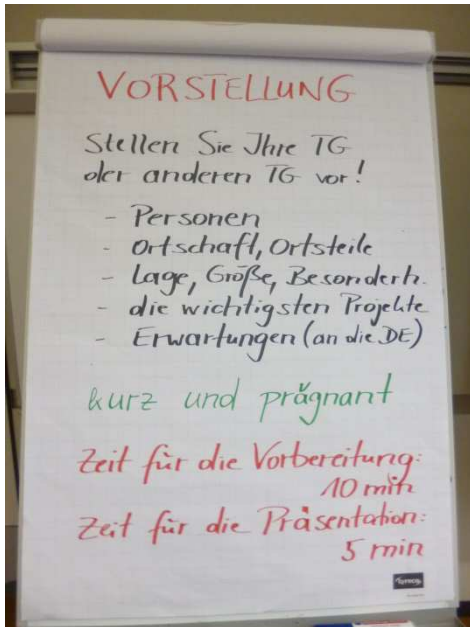 VORSTELLUNG
Stellen Sie Ihre TG
der anderen TG vor!
- Personen
- Ortschaft, Ortsteile
- Lage, Größe, Besonderh.
- die wichtigsten Projekte
- Erwartungen (an die DE)
kurz und prägnant
Zeit für die Vorbereitung:
10 min
Zeit für die Präsentation:
5 min